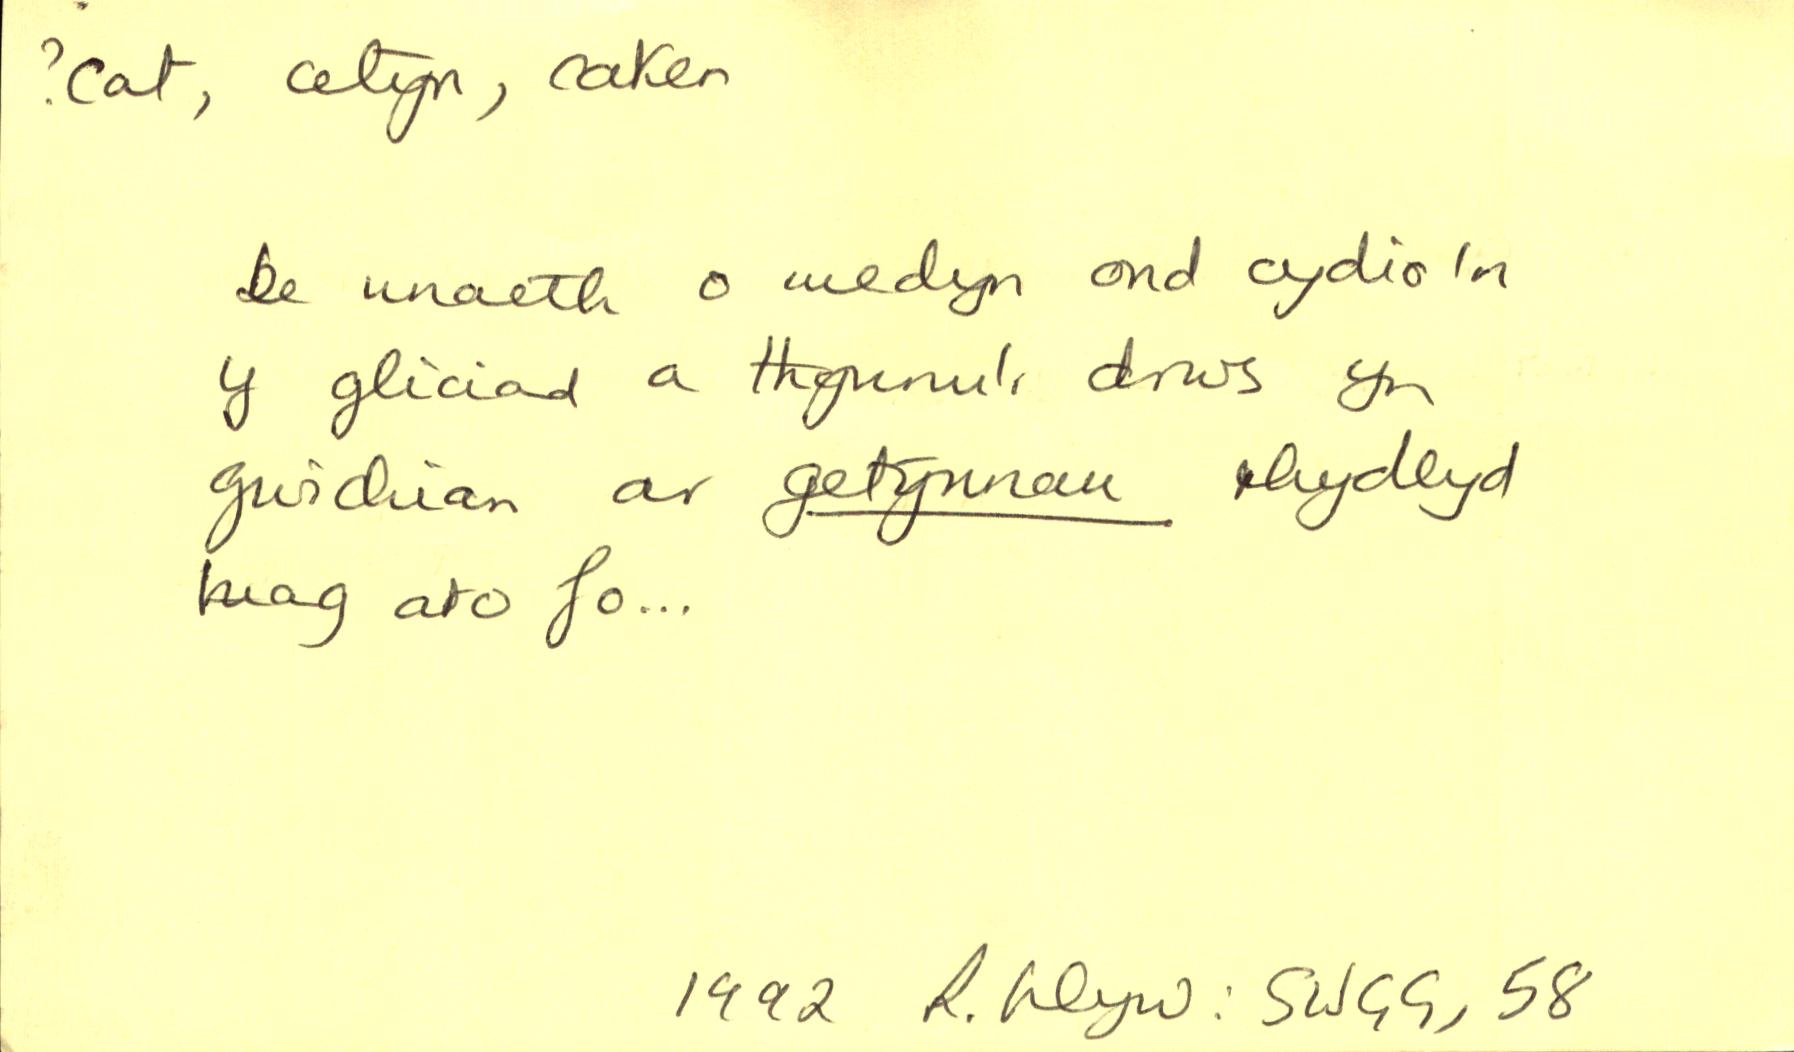 ?cat, cetyn, caken
be wnaeth o wedyn ond cydio'n
y gliciad a thynnu'r drws yn
gwichian ar getynnau rhydlyd
tuag ato fo...
1992 R. Llywelyn: SWGG, 58